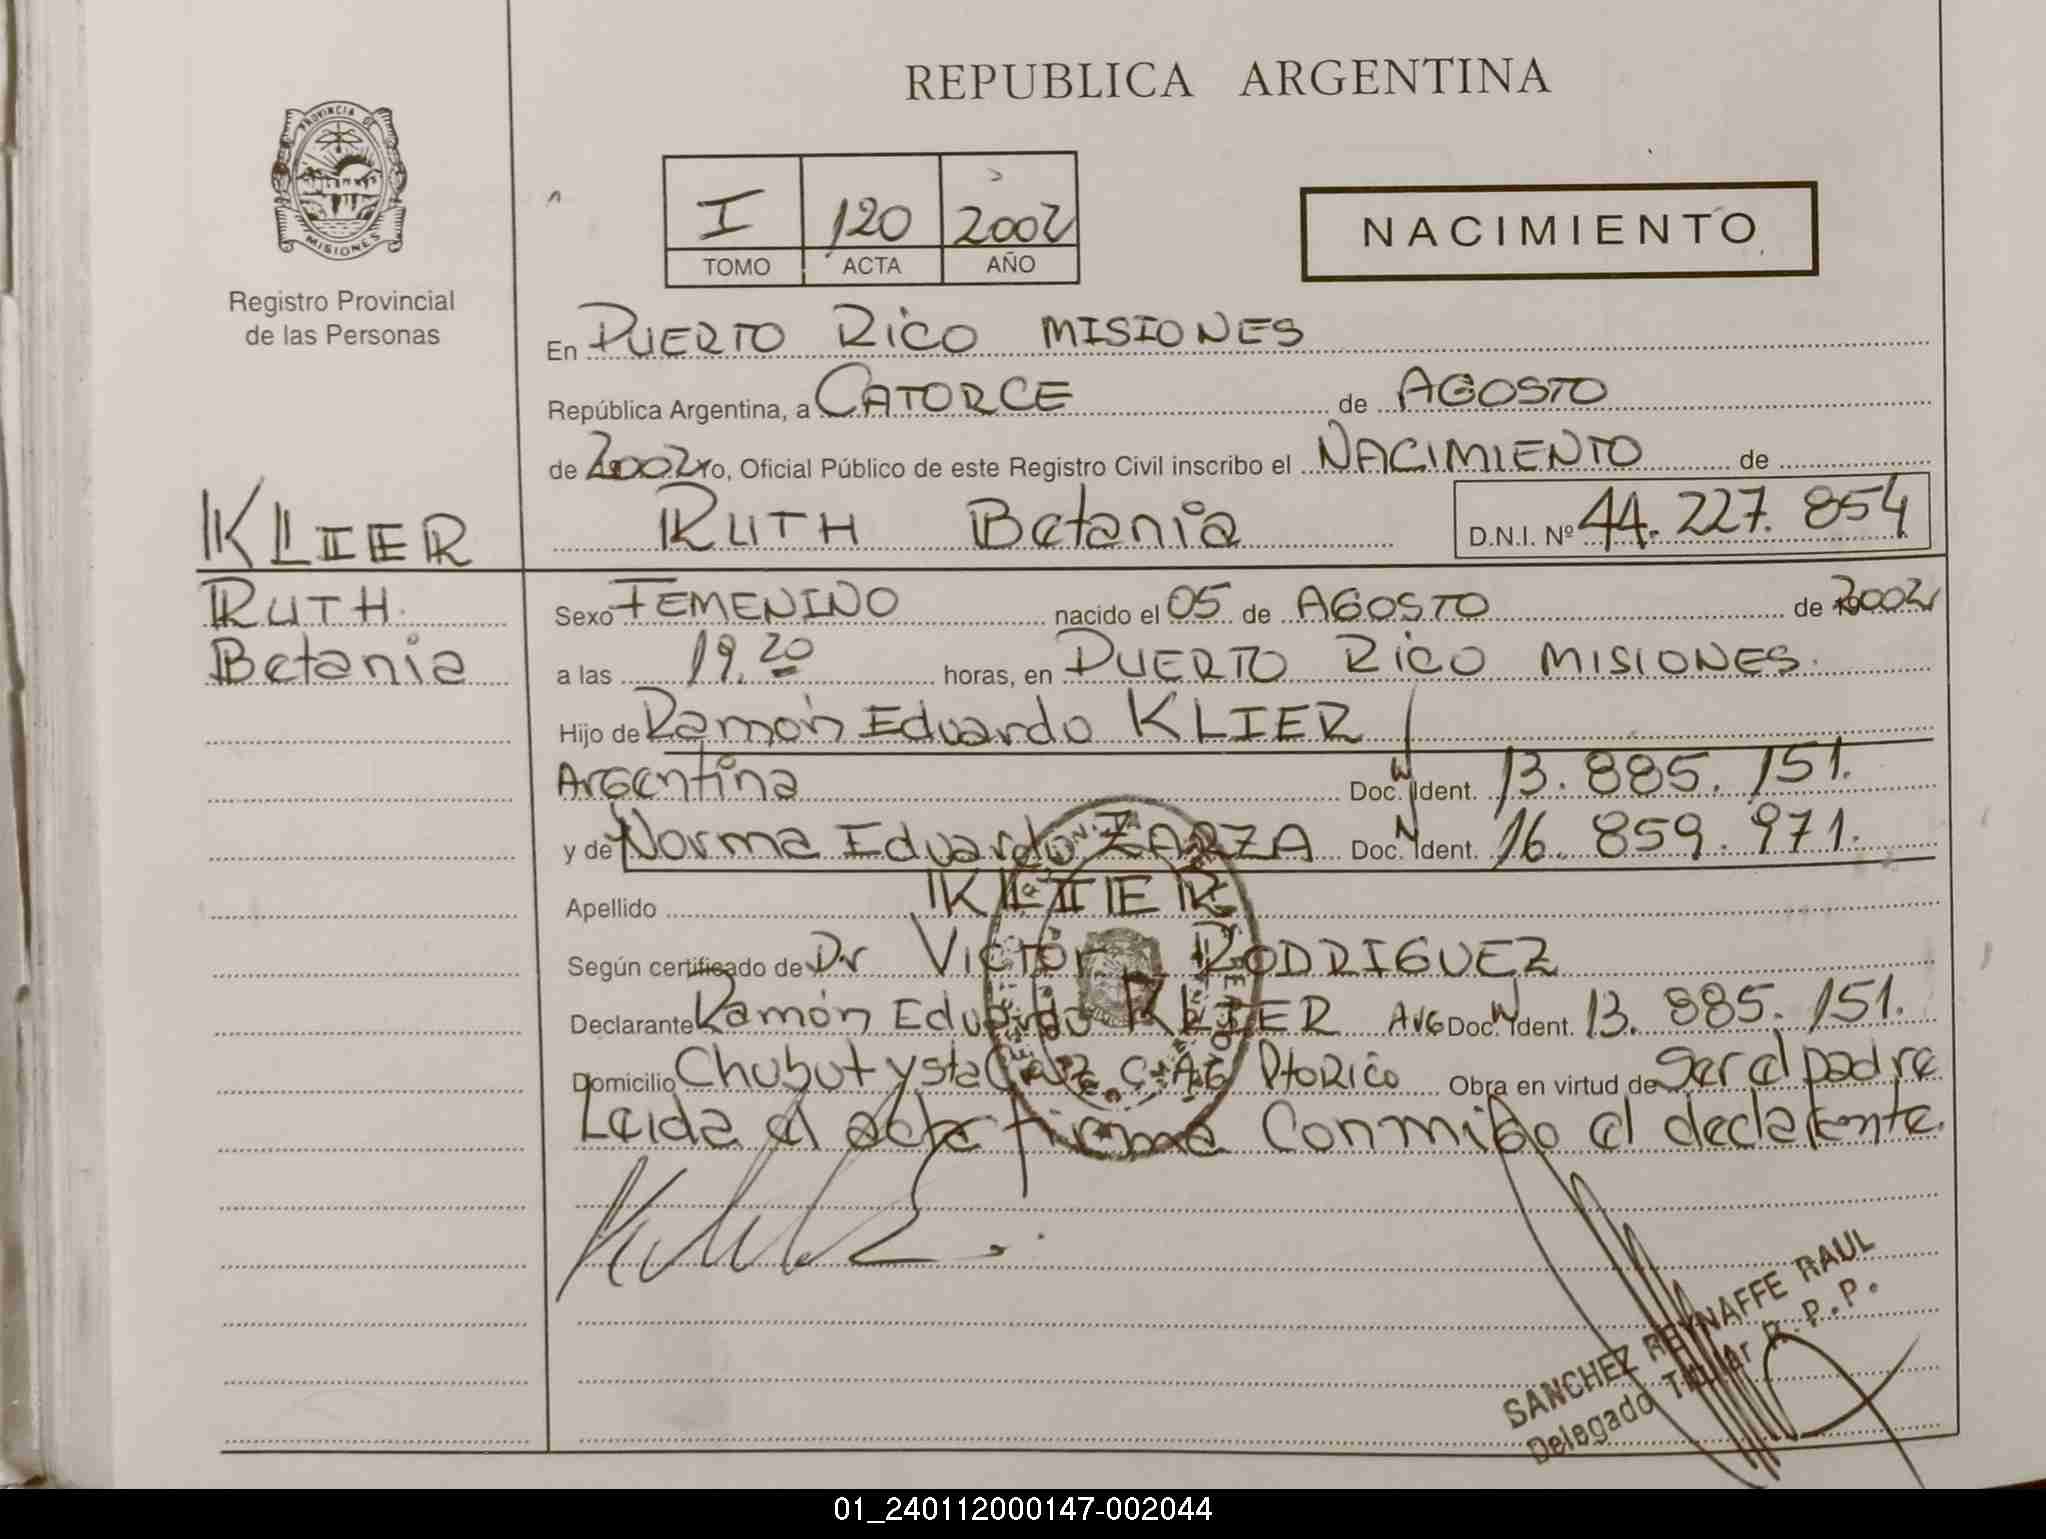 REPUBLICA ARGENTINA
PROVINCIA DE
MISIONES
Registro Provincial
de las Personas
I 120 2002
TOMO ACTA AÑO
NACIMIENTO
En PUERTO RICO MISIONES
República Argentina, a CATORCE de AGOSTO
de 2002 Yo, Oficial Público de este Registro Civil inscribo el NACIMIENTO de
RUTH Betania D.N.I. Nº 44.227.854
KLIER
RUTH
Betania
Sexo FEMENINO nacido el 05 de AGOSTO de 2002
a las 19.20 horas, en PUERTO RICO MISIONES.
Hijo de Ramón Eduardo KLIER
Argentina Doc. Ident. 13.885.151.
y de Norma Eduardo ZARZA Doc. Ident. 16.859.971.
Apellido KLIER
Según certificado de Dr VICTOR RODRIGUEZ
Declarante Ramón Eduardo KLIER ArG Doc. Ident. 13.885.151.
Domicilio Chubut y Sta Cruz C.A.G PtoRico Obra en virtud de Ser el padre
Leida el acta firma Conmigo el declarante.
SANCHEZ REYNAFFE RAUL
Delegado Titular R.P.P.
01_240112000147-002044